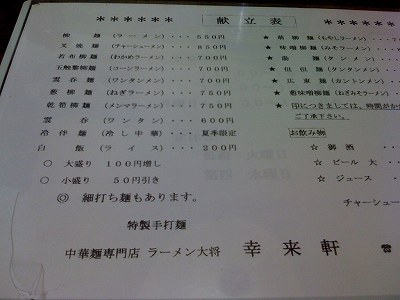 ****** 献立表 ******
柳麺 (ラーメン)・・・550円
叉焼麺 (チャーシューメン)・・・
若布柳麺 (わかめラーメン)・・・700円
玉蜀黍柳麺 (コーンラーメン)・・・700円
雲呑麺 (ワンタンメン)・・・700円
葱柳麺 (ねぎラーメン)・・・750円
乾筍柳麺 (メンマラーメン)・・・750円
雲呑 (ワンタン)・・・600円
冷伴麺 (冷し中華)・・・夏季限定
白飯 (ライス)・・・200円
○ 大盛り 100円増し
○ 小盛り 50円引き
◎ 細打ち麺もあります。
特製手打麺
中華麺専門店 ラーメン大将 幸来軒 ☎
★ 柳麺 (もやしラーメン)・・
★ 味噌柳麺 (みそラーメン)・・
★ 麺 (タンメン)・・・
★ 但但麺 (タンタンメン)・・
★ 広東麺 (カントンメン)・・
★ 葱味噌柳麺 (ねぎみそラーメン)・
★ 印につきましては、時間がか
ご了承下さい。
お飲み物
☆ 御酒・・・
☆ ビール 大・・・
☆ ジュース・・・
チャーシュー